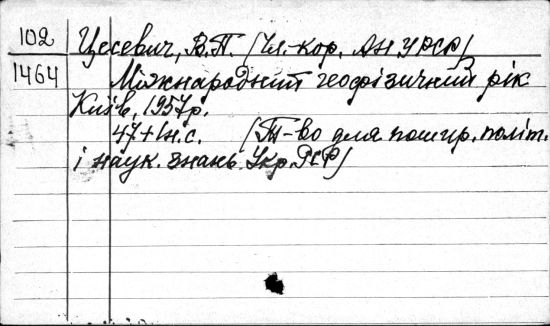 102 Цесевич, В.П. (Чл.-кор. АН УРСР)
1464 Міжнародний геофізичний рік
Київ, 1957р.
47+1н.с. (Т-во для пошир. політ.
і наук. знань Укр.РСР)